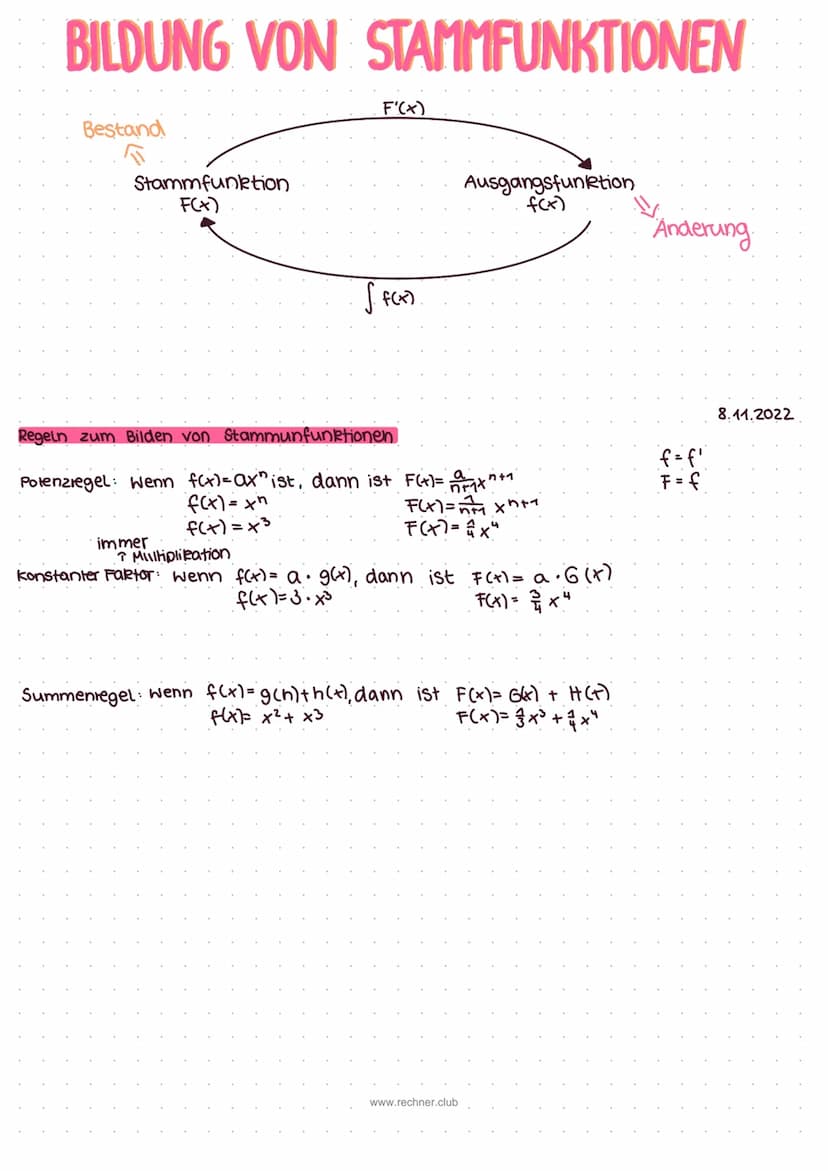 BILDUNG VON STAMMFUNKTIONEN
F'(x)
Bestand
Stammfunktion
F(x)
Ausgangsfunktion
f(x)
Änderung
∫ f(x)
8.11.2022
Regeln zum Bilden von Stammunfunktionen
f = f'
F = f
Potenzregel: Wenn f(x)=axⁿ ist, dann ist F(x)= a/n+1 xⁿ⁺¹
f(x) = xⁿ F(x)= 1/n+1 xⁿ⁺¹
f(x) = x³ F(x)= 1/4 x⁴
immer
↑ Multiplikation
Konstanter Faktor: Wenn f(x)= a · g(x), dann ist F(x)= a · G(x)
f(x)=3·x³ F(x)= 3/4 x⁴
Summenregel: Wenn f(x)=g(h)+h(x), dann ist F(x)= G(x) + H(x)
f(x)= x²+ x³ F(x)= 1/3 x³ + 1/4 x⁴
www.rechner.club